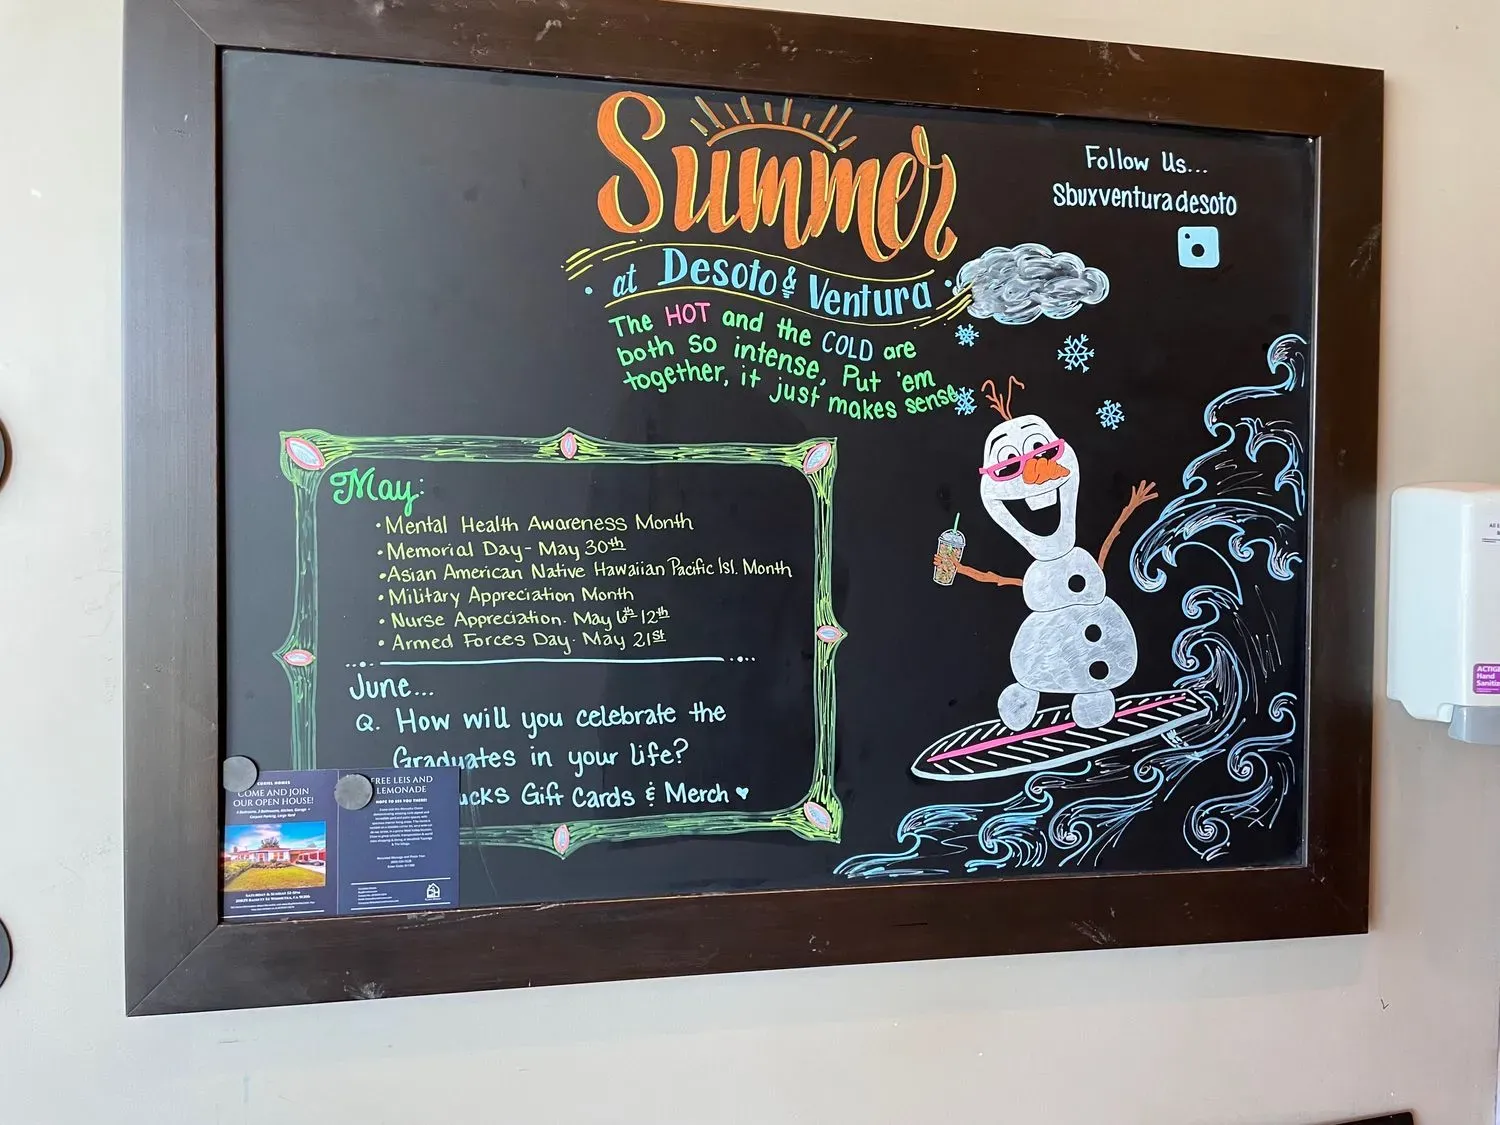 Summer
at Desoto & Ventura
The HOT and the COLD are
both so intense, Put 'em
together, it just makes sense
Follow Us...
Sbuxventuradesoto
May:
• Mental Health Awareness Month
• Memorial Day - May 30th
• Asian American Native Hawaiian Pacific Isl. Month
• Military Appreciation Month
• Nurse Appreciation - May 6th-12th
• Armed Forces Day - May 21st
June...
Q. How will you celebrate the
Graduates in your life?
ucks Gift Cards & Merch ♥
COME AND JOIN
OUR OPEN HOUSE!
FREE LEIS AND
LEMONADE
HOPE TO SEE YOU THERE!
Hand